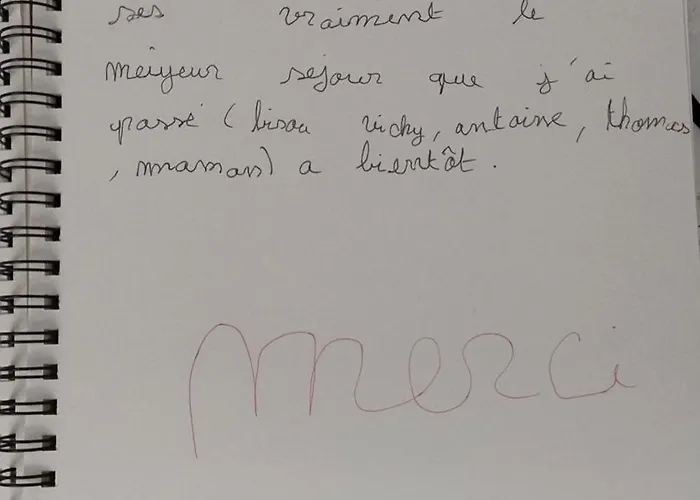 ses vraiment le
meiyeur sejour que j'ai
passé (bisou vichy, antoine, thomas
, maman) a bientôt.
merci